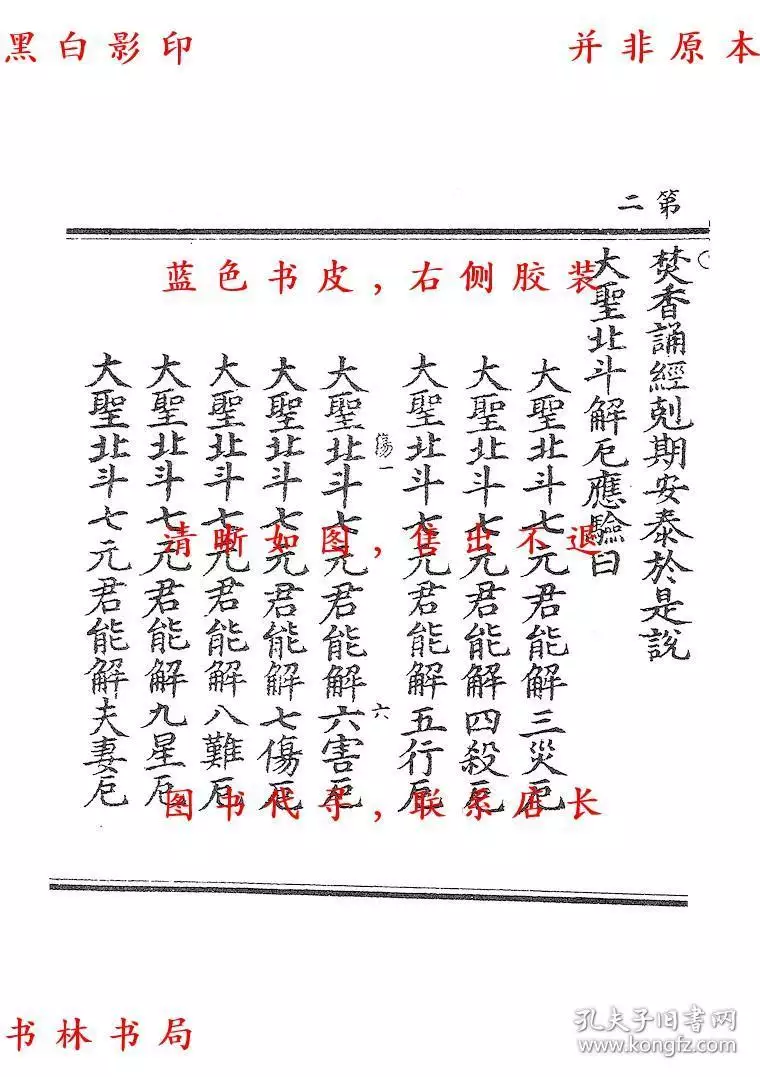 黑白影印
并非原本
第二
焚香誦經剋期安泰於是説
大聖北斗解厄應驗曰
大聖北斗七元君能解三災厄
大聖北斗七元君能解四殺厄
大聖北斗七元君能解五行厄
傷一 六
大聖北斗七元君能解六害厄
大聖北斗七元君能解七傷厄
大聖北斗七元君能解八難厄
大聖北斗七元君能解九星厄
大聖北斗七元君能解夫妻厄
蓝色书皮,右侧胶装
清晰如图,售出不退
图书代寻,联系店长
书林书局
孔夫子旧书网
www.kongfz.com